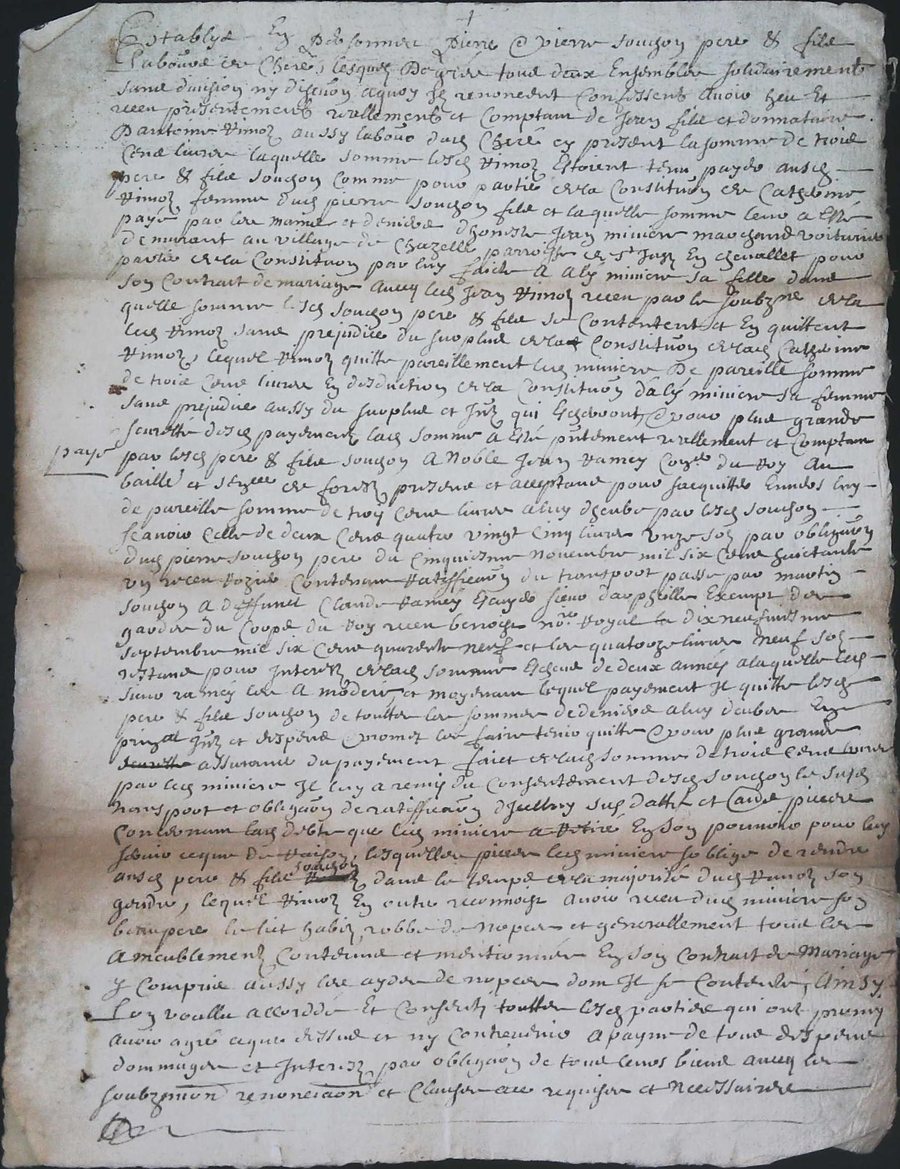 Establys En Personnes Pierre & pierre souchon pere & filz
Laboure de Cheré, lesquelz De grés tous deux Ensembles solidairement
sans division ny discution aquoy Ils renoncent Confessent avoir heu Et
receu presentement reellement et Comptant de Jean filz et donnataire
D'antoine Rimoz aussy labour dud Cheré cy present la somme de trois
Cens livres laquelle somme lesd Rimoz Estoient tenu payer ausd
pere & filz souchon comme pour partie de la Constitution de Catherine
Rimoz femme dud pierre souchon filz et laquelle somme leur a Esté
payé par les mains et deniers d'honeste Jean miniere marchand voiturier
demurant au village de Chazelle parroisse de St Jean En chevallet pour
partie de la Constitution par luy faicte A aly miniere sa fille dans
son Contrait de mariage avecq led Jean Rimoz receu par le soubzne de la
quelle somme lesd souchon pere & filz se Contentent et En quittent
led Rimoz sans prejudice du surplus de la Constitution de lad Catherine
Rimoz, lequel Rimoz quitte pareillement led miniere De pareille somme
de trois Cens livres En desduction de la Constitution d'aly miniere sa femme
sans prejudice aussy du surplus et Intz qui Eschevont, & pour plus grande
seurette desd payement lad somme a Esté pntement reellement et Comptant
paye
par lesd pere & filz souchon A Noble Jean Ramey Coner du Roy Au
baillié et Sences de forestz present et acceptant pour sacquitter Envers luy
de pareille somme de troy Cens livres a luy dheube par lesd souchon
scavoir Celle de deux Cens quatre vingt Cinq livres unze solz par obligaon
dud pierre souchon pere du cinquiesme novembre mil six Cens huictante
un receu Rozier Contenant Ratiffication du transport passé par martin
souchon A deffunct Claude Ramey Escuyer Exempt des
gardes du Corps du Roy receu beniche nore Royal le dix neufviesme
septembre mil six Cens quarente neuf et les quatorze livres neuf solz
restans pour Interetz de lad somme Escheus de deux années a laquelle led
sieur ramey les A moderé et moyenant lequel payement Il quitte lesd
pere & filz souchon de toutte les sommes de deniers a luy deubes En
prinal Intz et despens & promet les faire tenir quitte & pour plus grande
seurette assurance du payement faict de lad somme de trois Cens livres
par led miniere Il luy a remis du Consentement desd souchon le susd
transport et obligaon de ratiffication d'Icelluy susdatté et autres pieces
Concernant lad debte que led miniere a Retiré En son pouvoir pour luy
servir ceque De Raison, lesquelles pieces led miniere soblige de rendre
ausd pere & filz souchon dans le temps de la majorité dud Rimoz son
gendre, lequel Rimoz En outre recognoist avoir receu dud miniere son
beaupere le lict habitz robbe de nopces et generallement tous les
Ameublement Contenus et mentionnés En son Contrait de Mariage
y Compris aussy les aydes de nopces dont Il se Contente, Ainsy
L'on voullu accordé Et Consenty touttes lesd parties qui ont promis
avoir agré ceque dessus et ny Contrevenir A payne de tous despens
dommages et Interetz, par obligaon de tous leurs biens avecq les
soubzmion renonciaon et Clauses ad ce requises et Necessaires